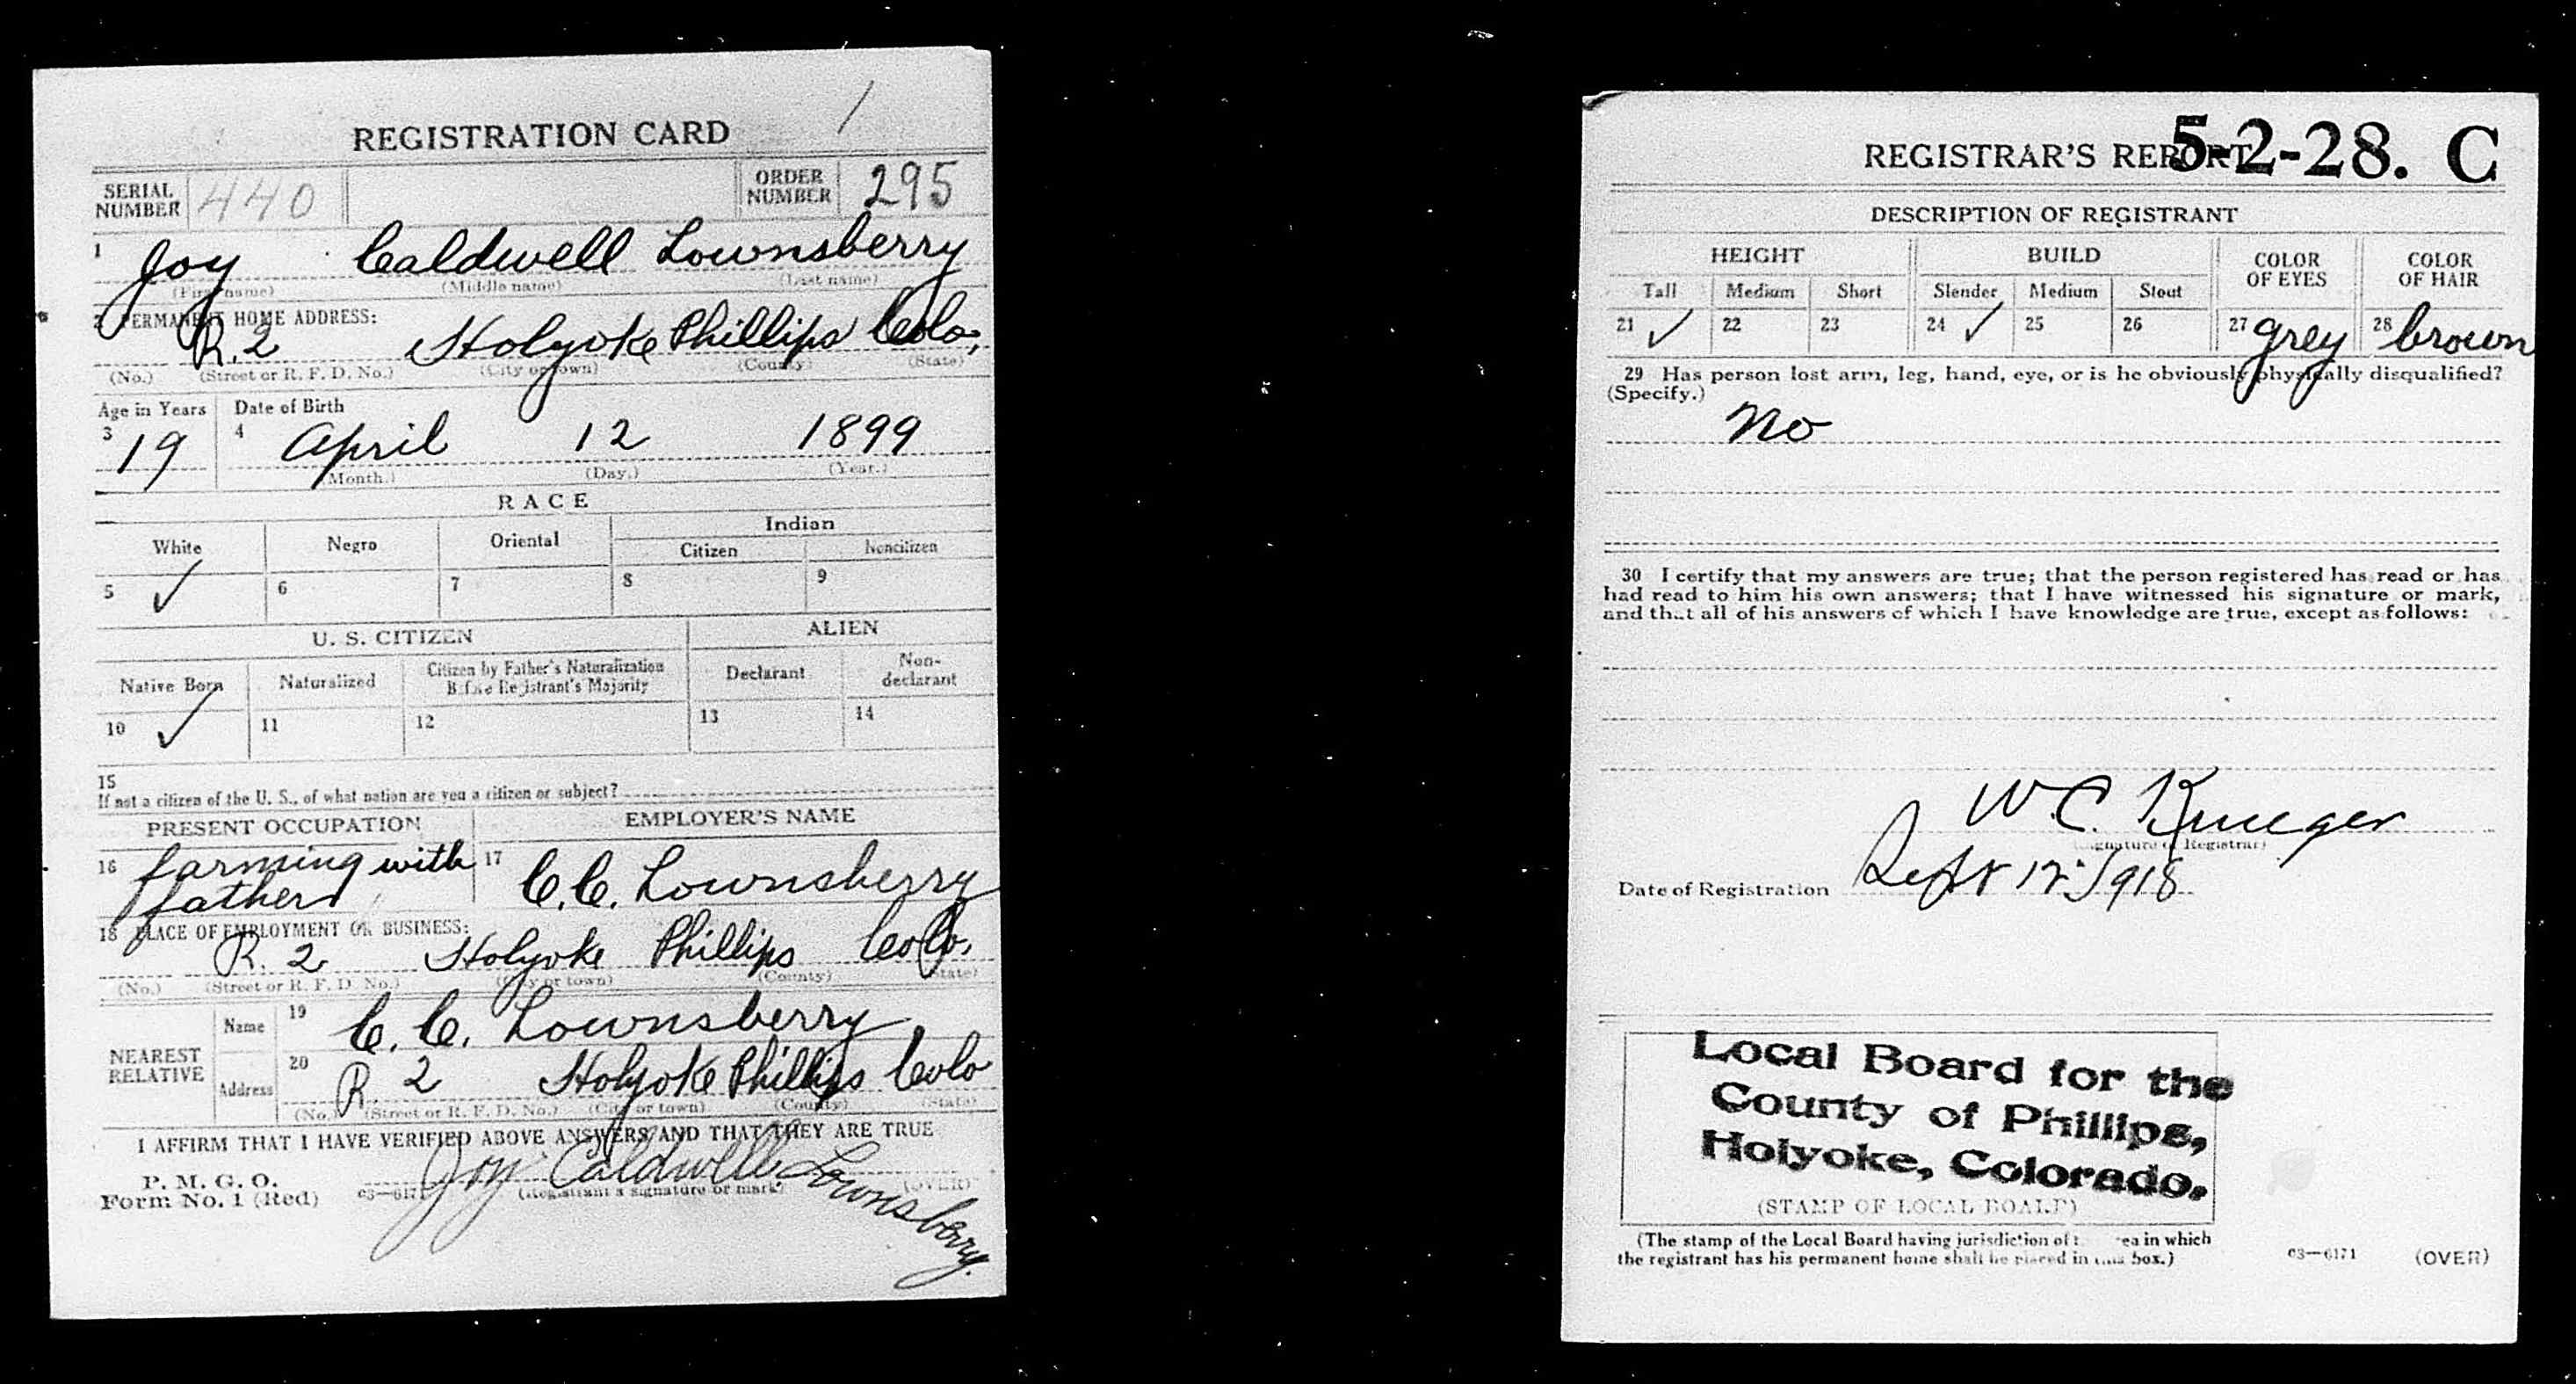 REGISTRATION CARD
SERIAL NUMBER 440 ORDER NUMBER 295
1 Joy Caldwell Lownsberry
(First name) (Middle name) (Last name)
2 PERMANENT HOME ADDRESS:
R.2 Holyoke Phillips Colo.
(No.) (Street or R. F. D. No.) (City or town) (County) (State)
Age in Years Date of Birth
3 19 4 April 12 1899
(Month.) (Day.) (Year.)
RACE
White Negro Oriental Indian
Citizen Noncitizen
5 ✓ 6 7 8 9
U. S. CITIZEN ALIEN
Native Born Naturalized Citizen by Father's Naturalization Before Registrant's Majority Declarant Non-declarant
10 ✓ 11 12 13 14
15
If not a citizen of the U. S., of what nation are you a citizen or subject?
PRESENT OCCUPATION EMPLOYER'S NAME
16 farming with father 17 C.C. Lownsberry
18 PLACE OF EMPLOYMENT OR BUSINESS:
R. 2 Holyoke Phillips Colo.
(No.) (Street or R. F. D. No.) (City or town) (County) (State)
NEAREST RELATIVE
Name 19 C. C. Lownsberry
Address 20 R. 2 Holyoke Phillips Colo
(No.) (Street or R. F. D. No.) (City or town) (County) (State)
I AFFIRM THAT I HAVE VERIFIED ABOVE ANSWERS AND THAT THEY ARE TRUE
P. M. G. O.
Form No. 1 (Red) 03—6171 Joy Caldwell Lownsberry.
(Registrant's signature or mark) (OVER)
REGISTRAR'S REPORT 5-2-28. C
DESCRIPTION OF REGISTRANT
HEIGHT BUILD COLOR OF EYES COLOR OF HAIR
Tall Medium Short Slender Medium Stout
21 ✓ 22 23 24 ✓ 25 26 27 grey 28 brown
29 Has person lost arm, leg, hand, eye, or is he obviously physically disqualified?
(Specify.)
No
30 I certify that my answers are true; that the person registered has read or has
had read to him his own answers; that I have witnessed his signature or mark,
and that all of his answers of which I have knowledge are true, except as follows:
W.C. Krueger
(Signature of Registrar)
Date of Registration Sept 12 1918
Local Board for the
County of Phillips,
Holyoke, Colorado.
(STAMP OF LOCAL BOARD)
(The stamp of the Local Board having jurisdiction of the area in which
the registrant has his permanent home shall be placed in this box.)
03—6171 (OVER)